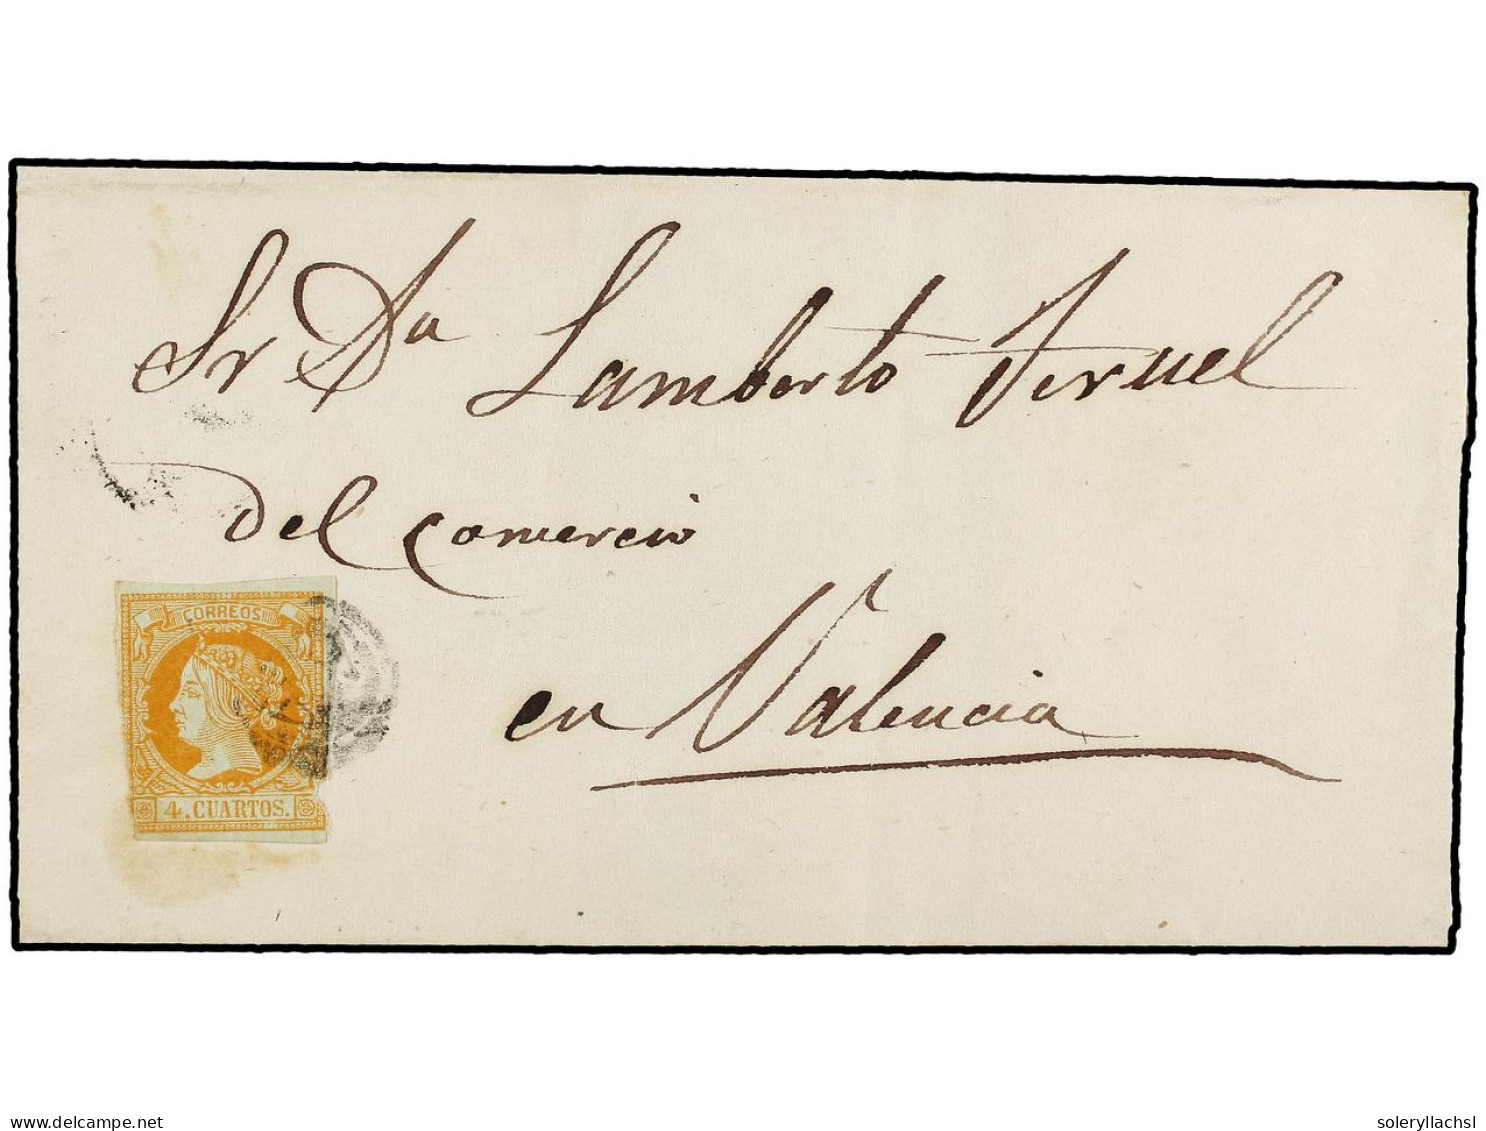 Sr Dn Lamberto Teruel
del comercio
en Valencia
CORREOS
4. CUARTOS.
delcampe.net
soleryllachsl